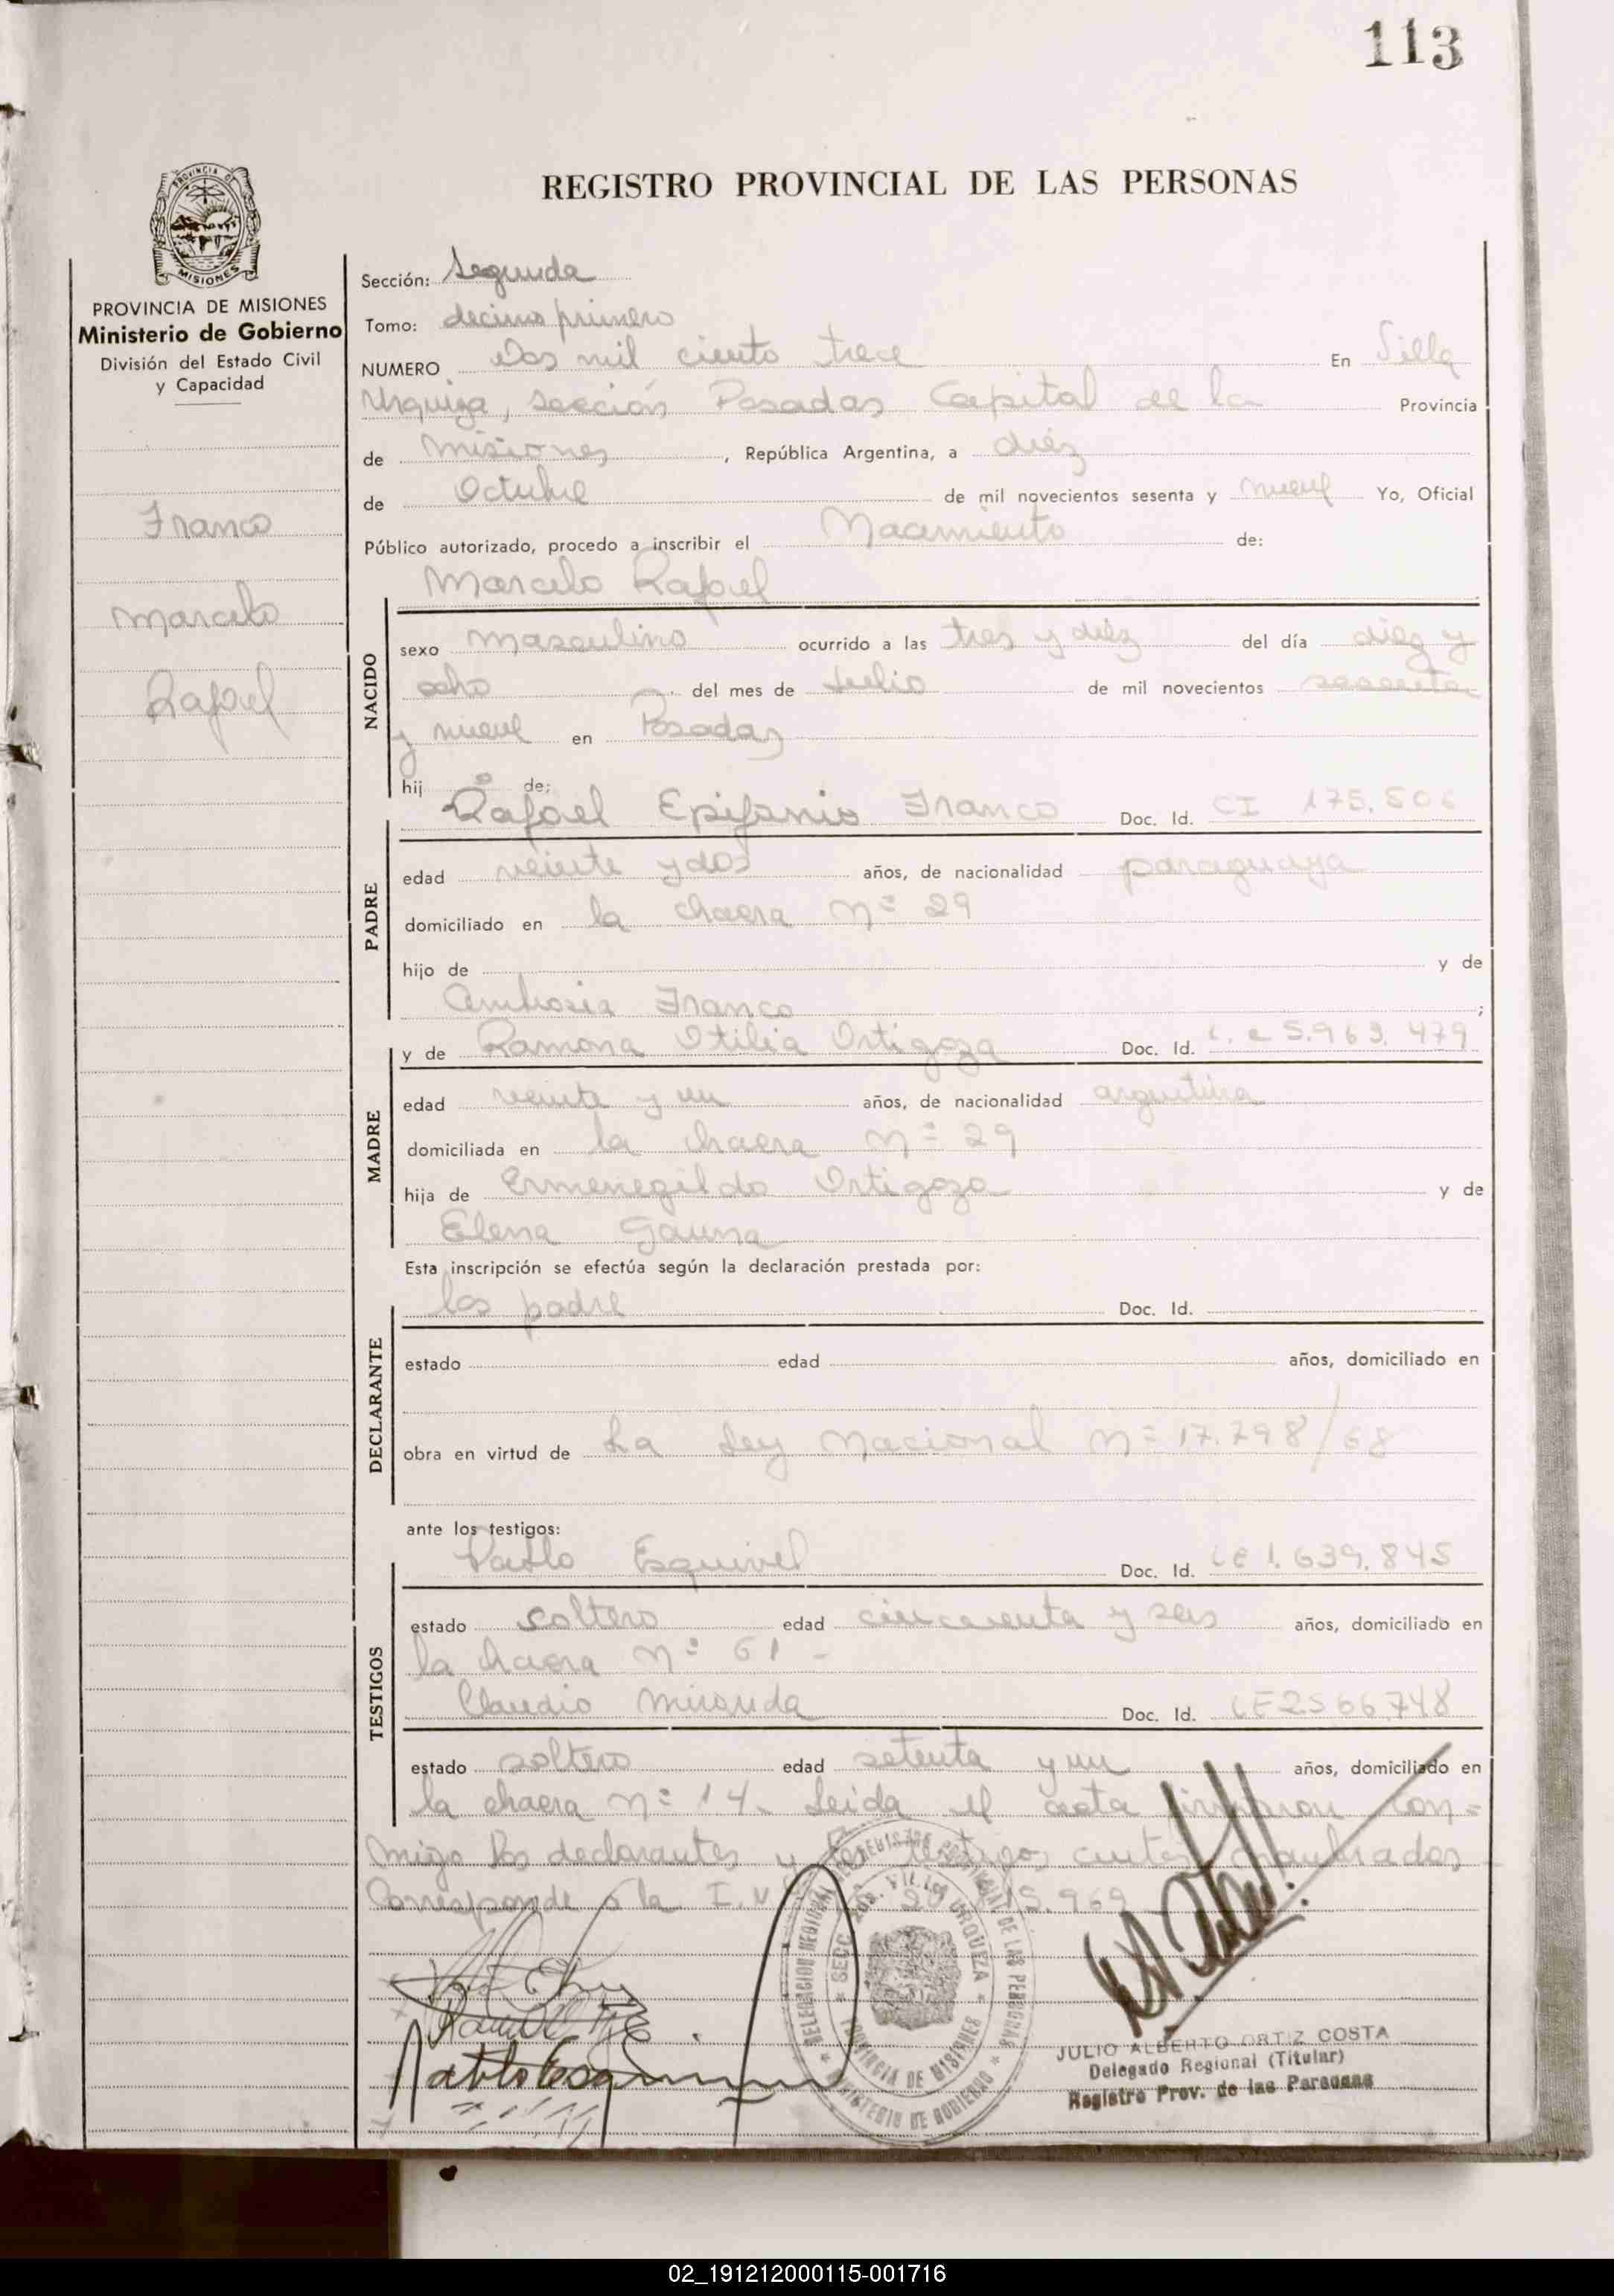 113
REGISTRO PROVINCIAL DE LAS PERSONAS
PROVINCIA DE MISIONES
PROVINCIA DE MISIONES
Ministerio de Gobierno
División del Estado Civil
y Capacidad
Franco
Marcelo
Rafael
Sección: Segunda
Tomo: decimo primero
NUMERO Dos mil ciento trece En Villa
Urquiza, sección Posadas Capital de la Provincia
de Misiones, República Argentina, a diéz
de Octubre de mil novecientos sesenta y nueve Yo, Oficial
Público autorizado, procedo a inscribir el Nacimiento de:
Marcelo Rafael
NACIDO
sexo masculino ocurrido a las tres y diéz del día diez y
ocho del mes de Julio de mil novecientos sesenta
y nueve en Posadas
hijo de:
Rafael Epifanio Franco Doc. Id. CI 175.506
PADRE
edad veinte y dos años, de nacionalidad paraguaya
domiciliado en la chacra Nº 29
hijo de y de
Ambrosia Franco;
y de Ramona Otilia Ortigoza Doc. Id. L. C 5.963.479
MADRE
edad veinte y un años, de nacionalidad argentina
domiciliada en la chacra Nº 29
hija de Ermenegildo Ortigoza y de
Elena Gauna
Esta inscripción se efectúa según la declaración prestada por:
los padre Doc. Id.
DECLARANTE
estado edad años, domiciliado en
obra en virtud de La Ley Nacional Nº 17.798/68
ante los testigos:
Pablo Esquivel Doc. Id. LE 1.639.845
TESTIGOS
estado soltero edad cincuenta y seis años, domiciliado en
la chacra Nº 61 -
Claudio Miranda Doc. Id. LE 2566.748
estado soltero edad setenta y un años, domiciliado en
la chacra Nº 14. Leida el acta firmaron con=
migo los declarantes y los testigos antes nombrados
Corresponde a la I.V. .969
DELEGACION REGIONAL DEL REGISTRO PROVINCIAL DE LAS PERSONAS
SECC. POS. VILLA URQUIZA
PROVINCIA DE MISIONES
MINISTERIO DE GOBIERNO
JULIO ALBERTO ORTIZ COSTA
Delegado Regional (Titular)
Registro Prov. de las Personas
02_191212000115-001716